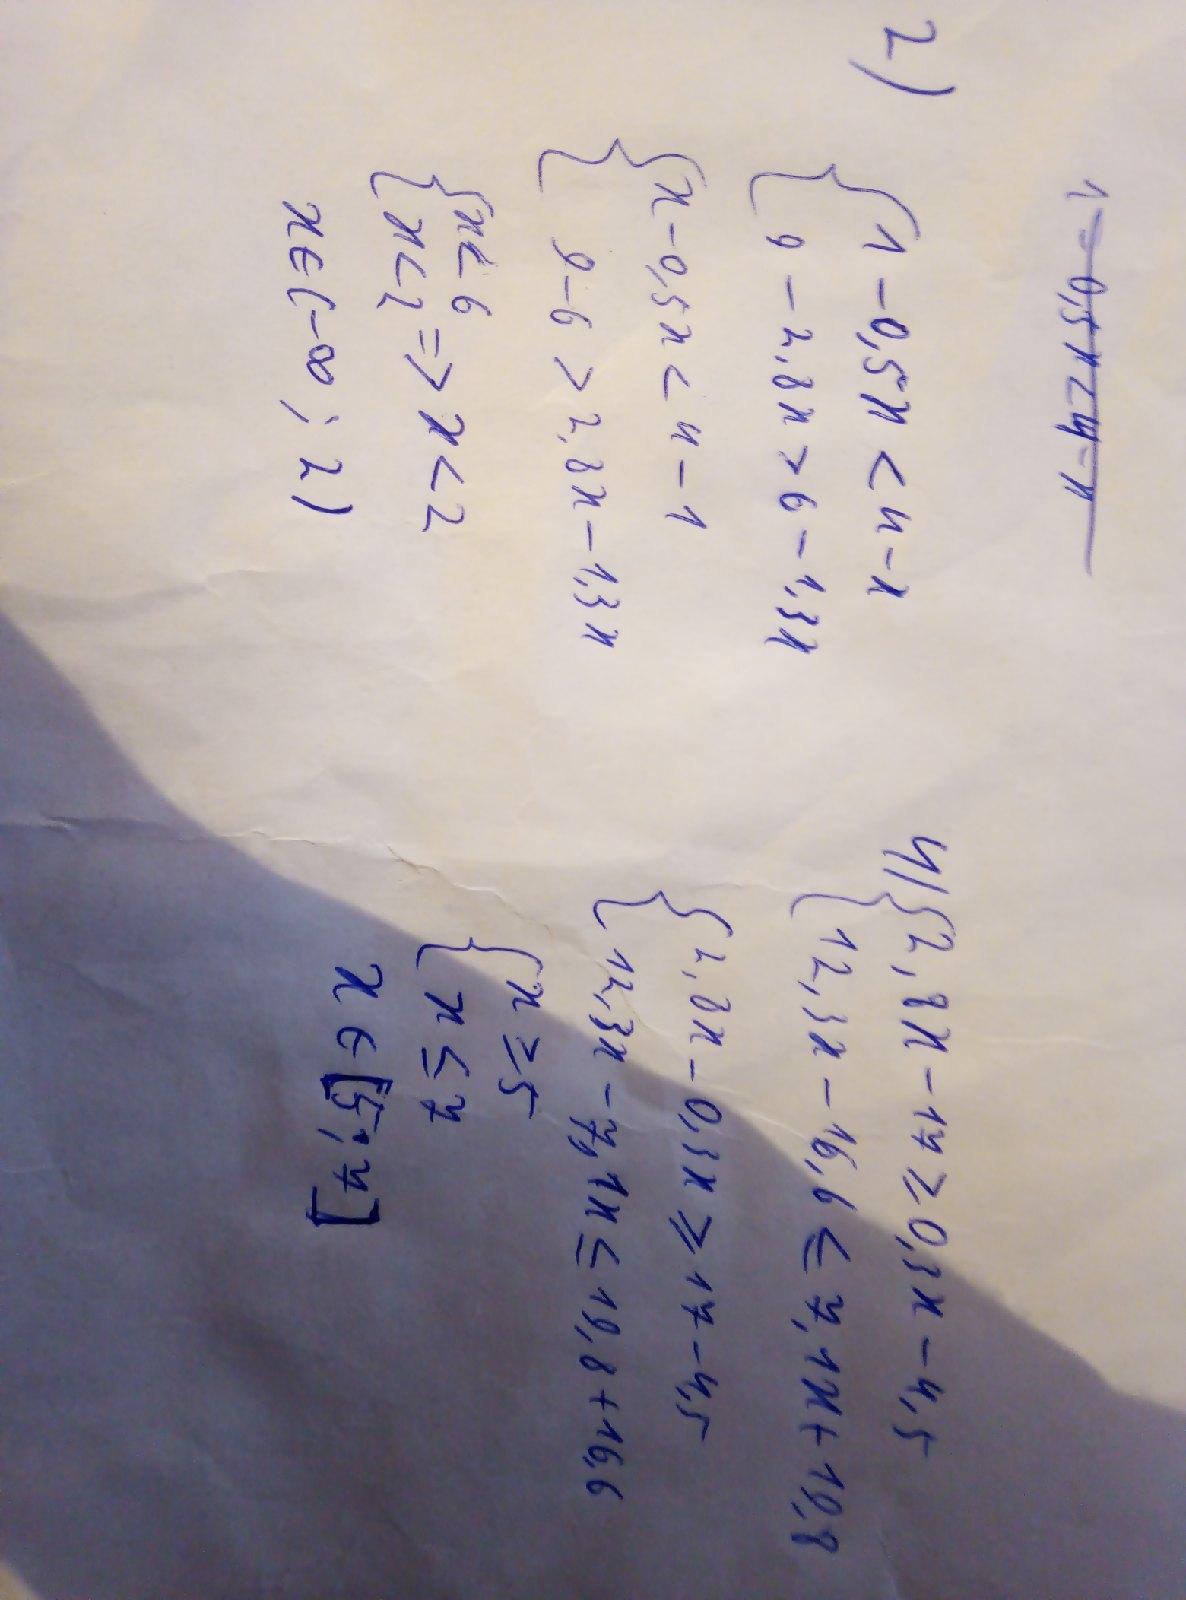 1-0,5x<4-x
2)
{1-0,5x<4-x
{9-2,8x>6-1,3x
{x-0,5x<4-1
{9-6>2,8x-1,3x
{x<6
{x<2=>x<2
x∈(-∞;2)
4){2,8x-17≥0,3x-4,5
{12,3x-16,6≤7,1x+19,8
{2,8x-0,3x≥17-4,5
{12,3x-7,1x≤19,8+16,6
{x≥5
{x≤7
x∈[5;7]